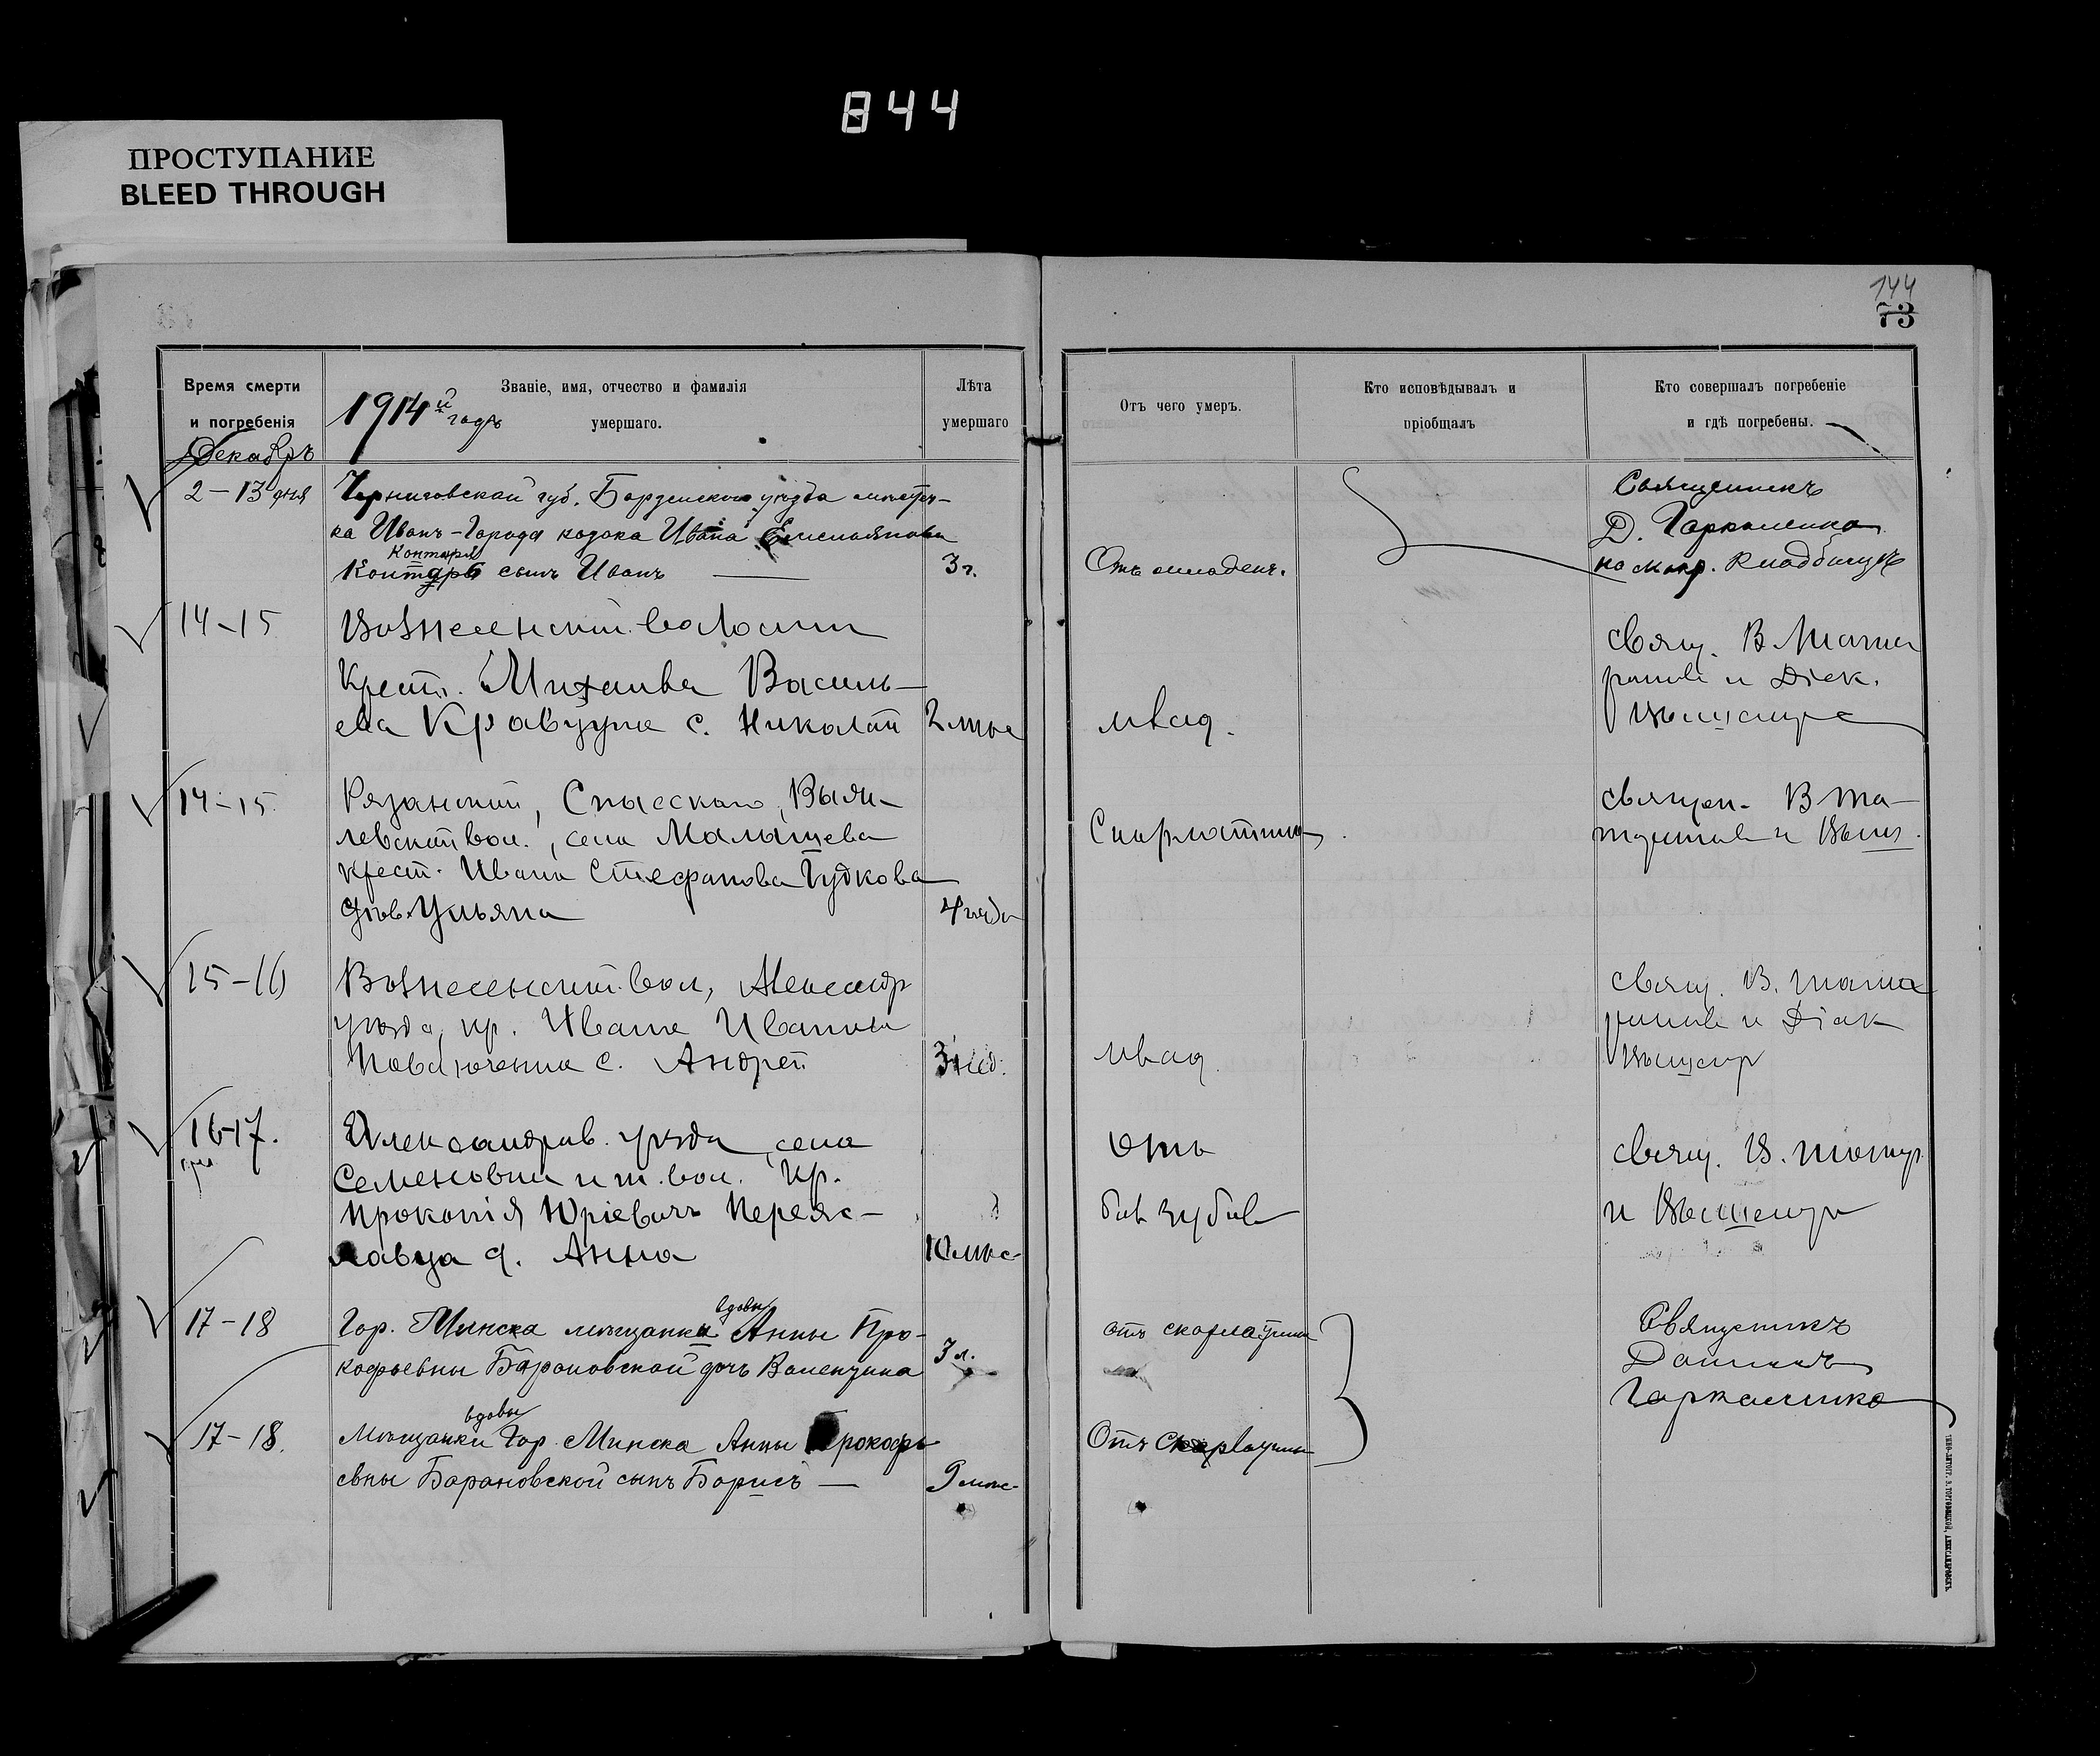 844
ПРОСТУПАНИЕ
BLEED THROUGH
144
73
Время смерти
и погребенія
Званіе, имя, отчество и фамилія
умершаго.
Лѣта
умершаго
Отъ чего умеръ.
Кто исповѣдывалъ и
пріобщалъ
Кто совершалъ погребеніе
и гдѣ погребены.
1914й годъ
Декабрь
2-13 дня
Черниговской губ. Борзенскаго уѣзда мѣстеч-
ка Иванъ-Города козака Ивана Емельянова
Контаря
Контарь сынъ Иванъ
3 г.
Отъ младенч.
Священникъ
Д. Гаркаленко
на мѣр. Кладбищѣ
14-15
Вознесенской волости
Крест. Михаила Василь-
ева Кравчуна с. Николай
2 мѣс
млад.
свящ. В.
и Діак.
14-15
Рязанской, Спасскаго,
левской вол., села Малышева
крест. Ивана Стефанова Гудкова
Ульяна
4 года
Скарлатина
священ. В
15-16
Вознесенской вол, Александр
уѣзда, кр. Ивана Иванова
с. Андрей
3 нед.
млад.
свящ. В.
и Діак
16-17.
Александров. уѣзда, села
Семеновки и т. вол. Кр.
Прокопія Юріевича Переяс-
лавца д. Анна
10 мѣс
отъ
зубов
свящ. В.
и
17-18
вдовы
Гор. Минска мѣщанки Анны Про-
кофьевны Барановской дочь Валентина
3 л.
отъ скарлатины
Священникъ
Даніилъ
Гаркаленко
17-18.
вдовы
Мѣщанки Гор. Минска Анны Прокофь
евны Барановской сынъ Борисъ
9 мѣс
Отъ скарлатины